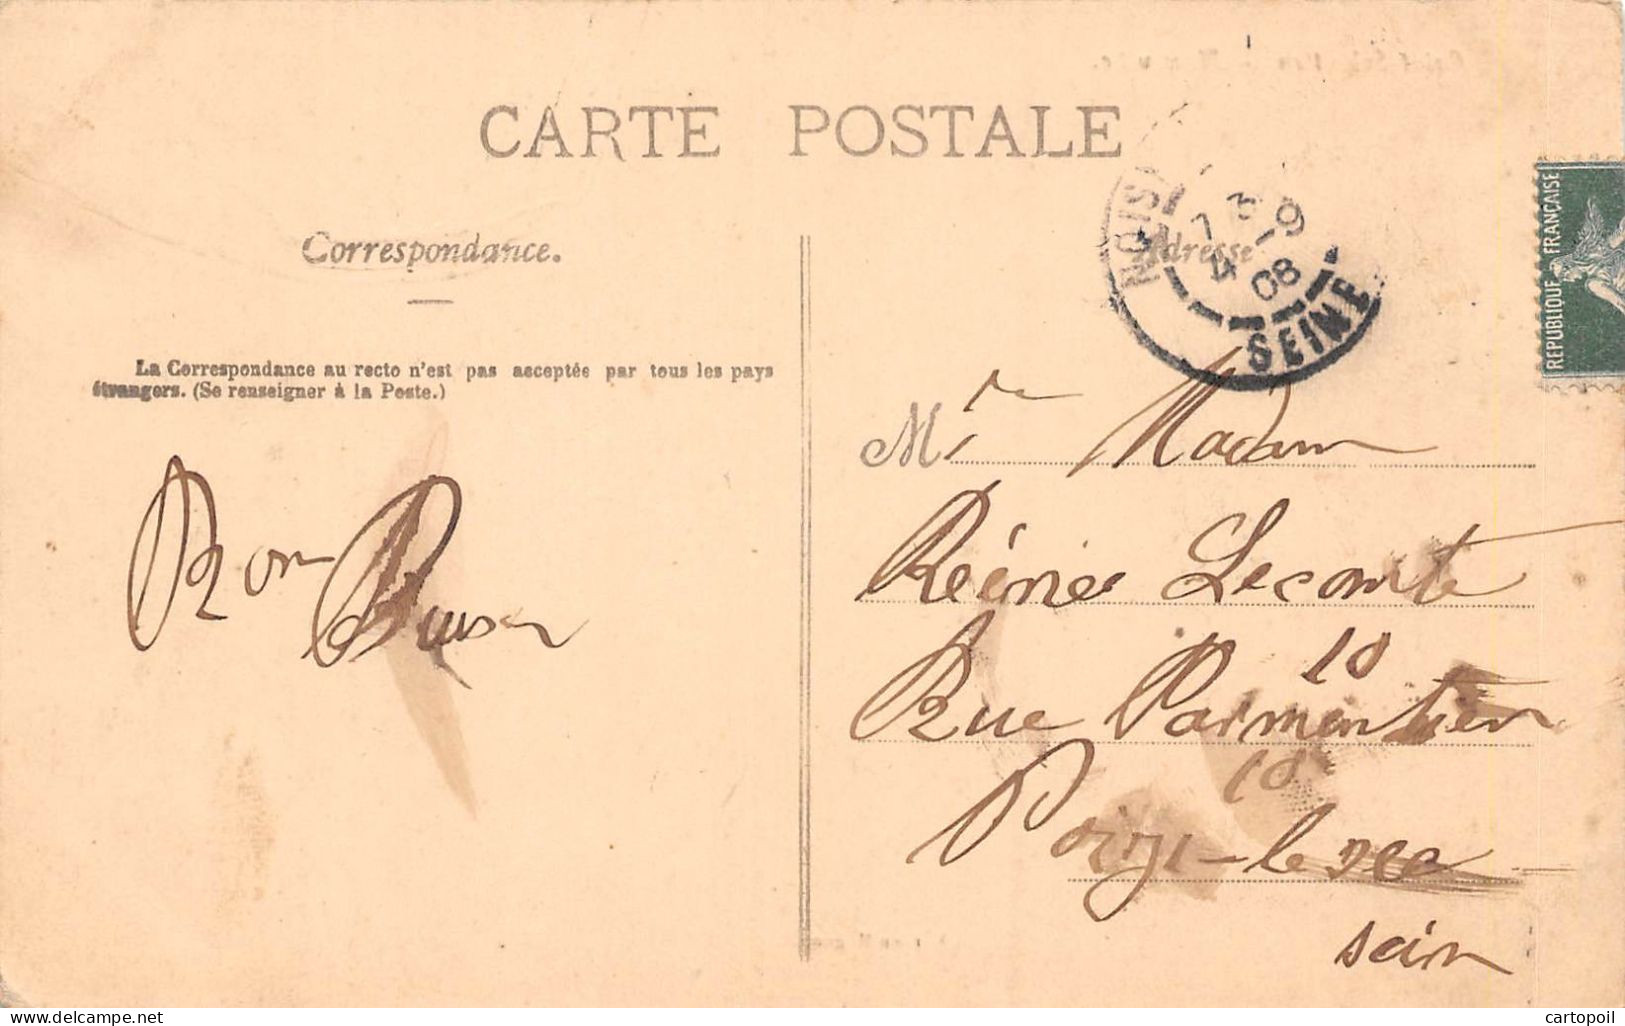 CARTE POSTALE
Correspondance.
Adresse
La Correspondance au recto n'est pas acceptée par tous les pays
étrangers. (Se renseigner à la Poste.)
Bon Baiser
NOIS
7 3 -9
4 08
SEINE
REPUBLIQUE FRANÇAISE
M
Madam
Reine Lecomte
10
Rue Parmentier
10
le sec
sein
cartopoil
Delcampe.net